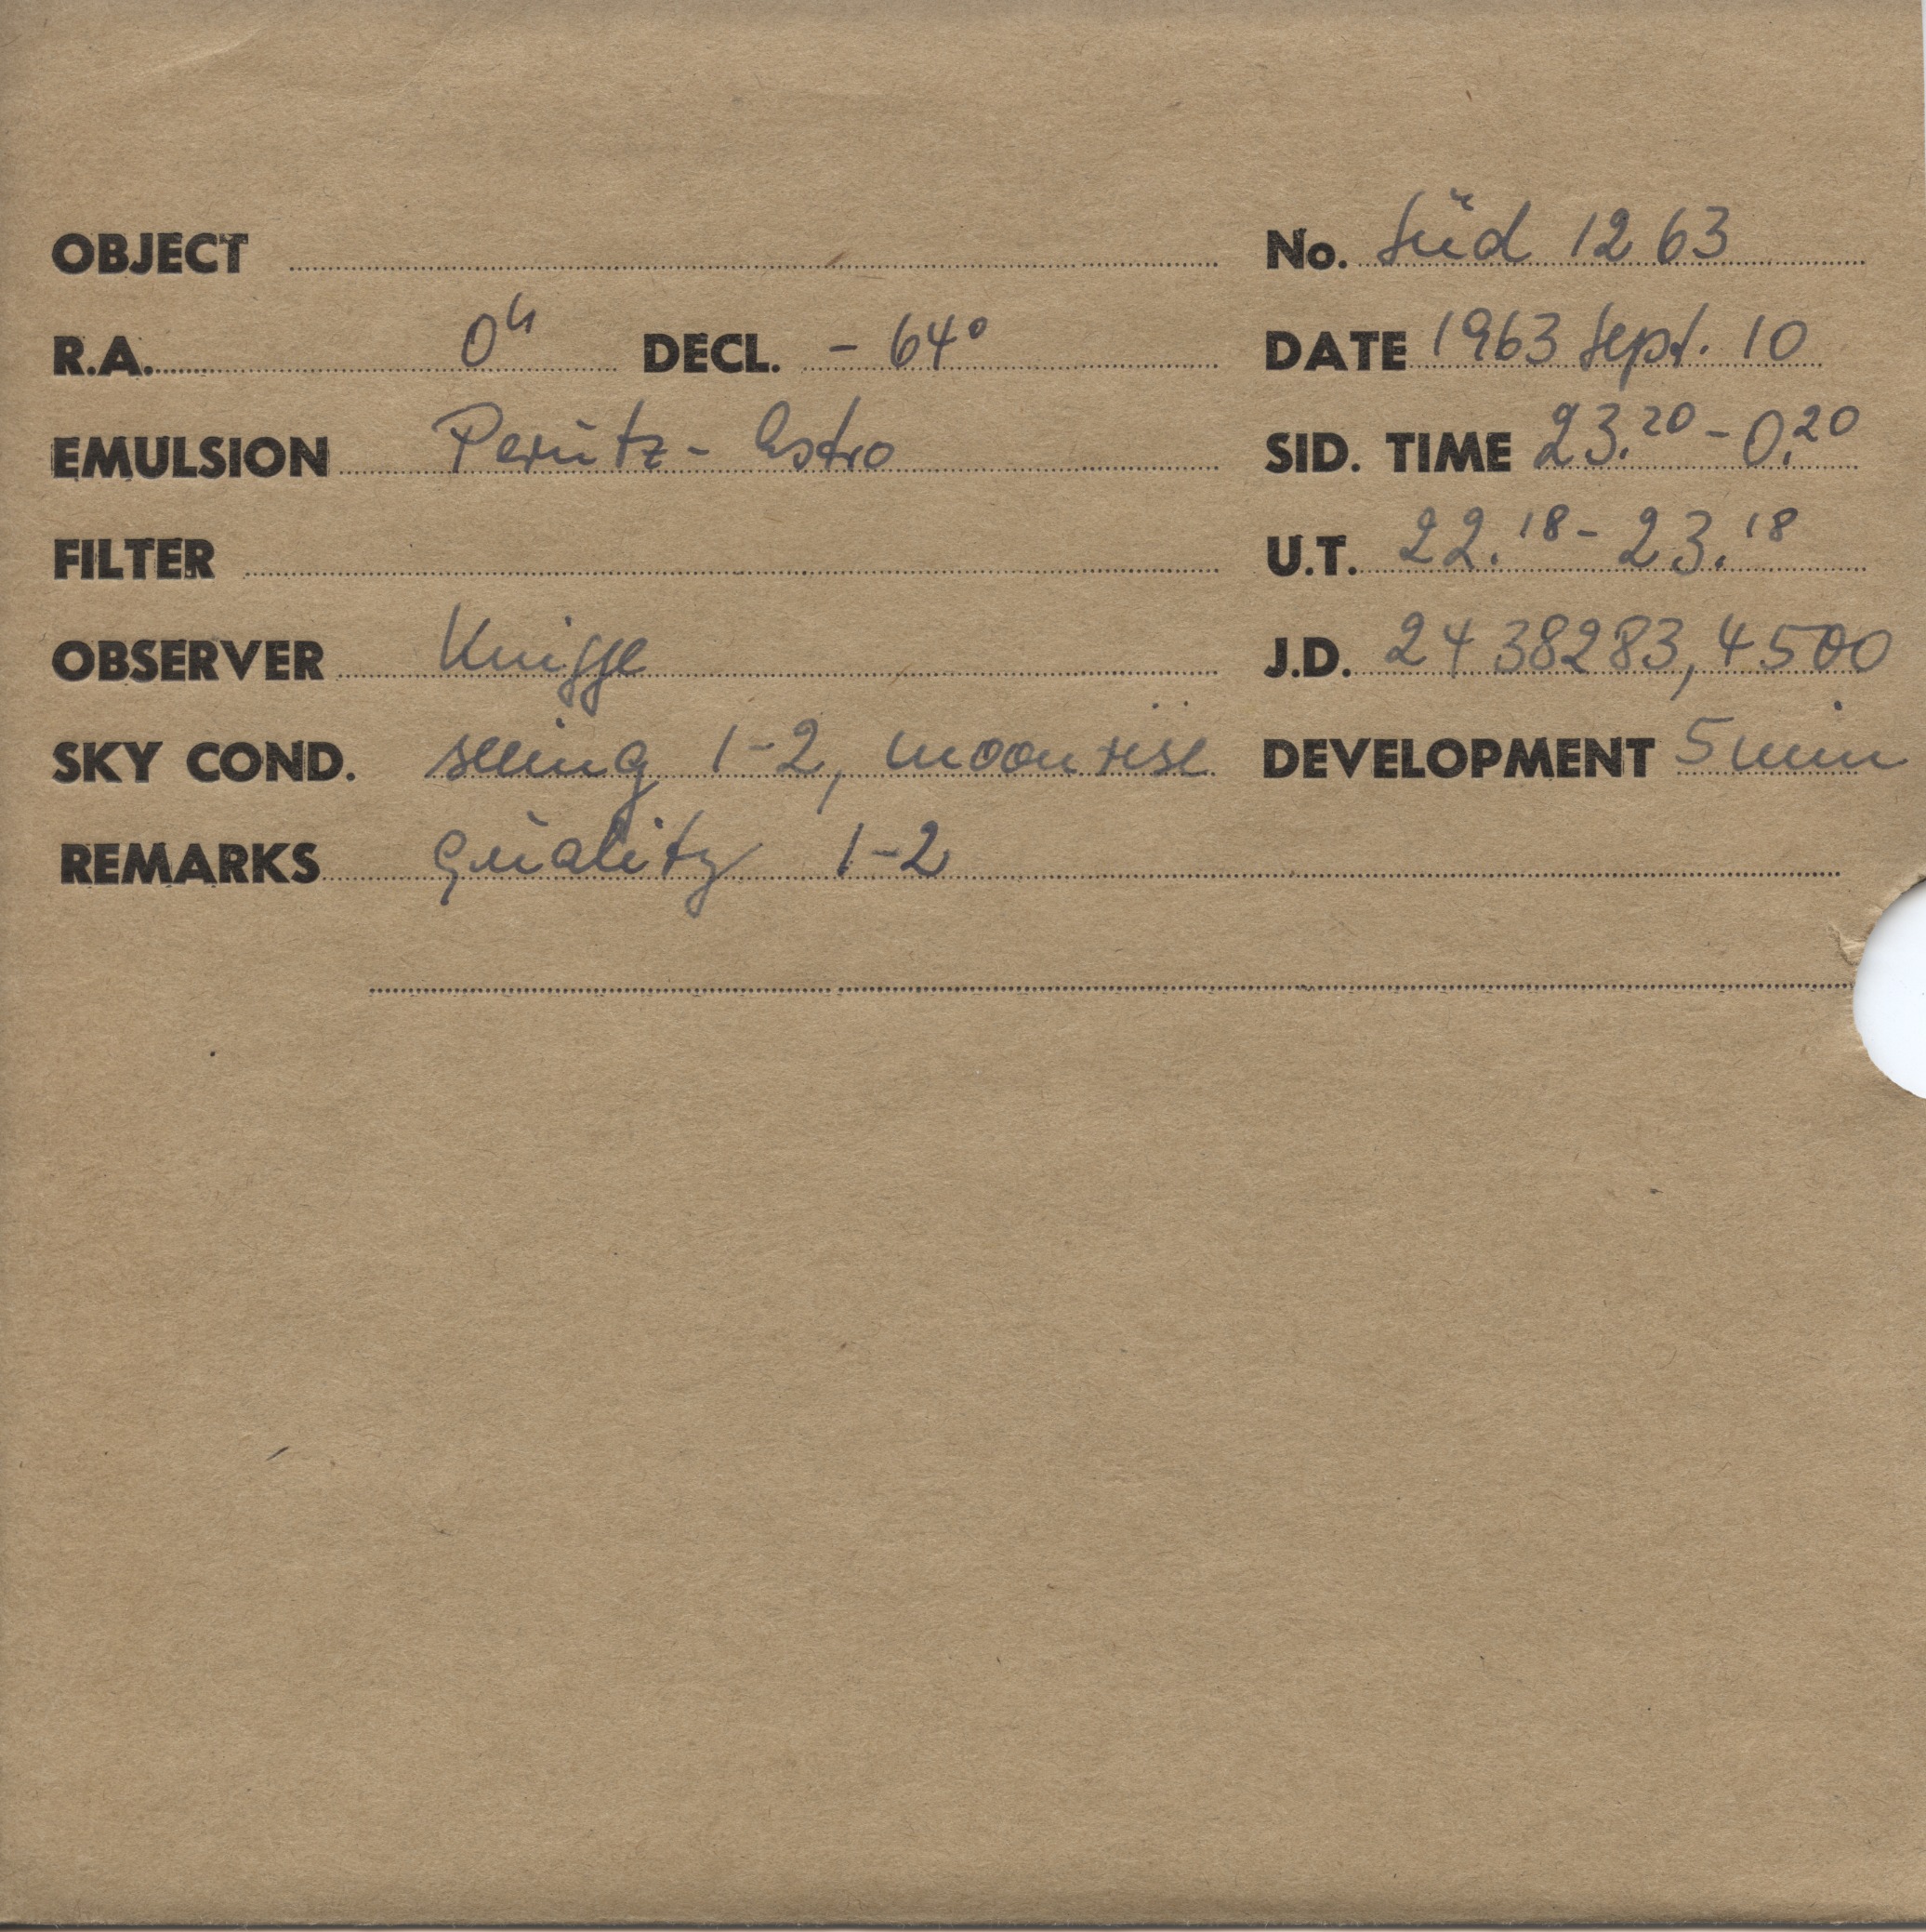 OBJECT No. Süd 1263
R.A. 0h DECL. - 64° DATE 1963 Sept. 10
EMULSION Perutz - Astro SID. TIME 23.20 - 0.20
FILTER U.T. 22.18 - 23.18
OBSERVER Knigge J.D. 2438283,4500
SKY COND. seeing 1-2, moon rise DEVELOPMENT 5 min
REMARKS quality 1-2